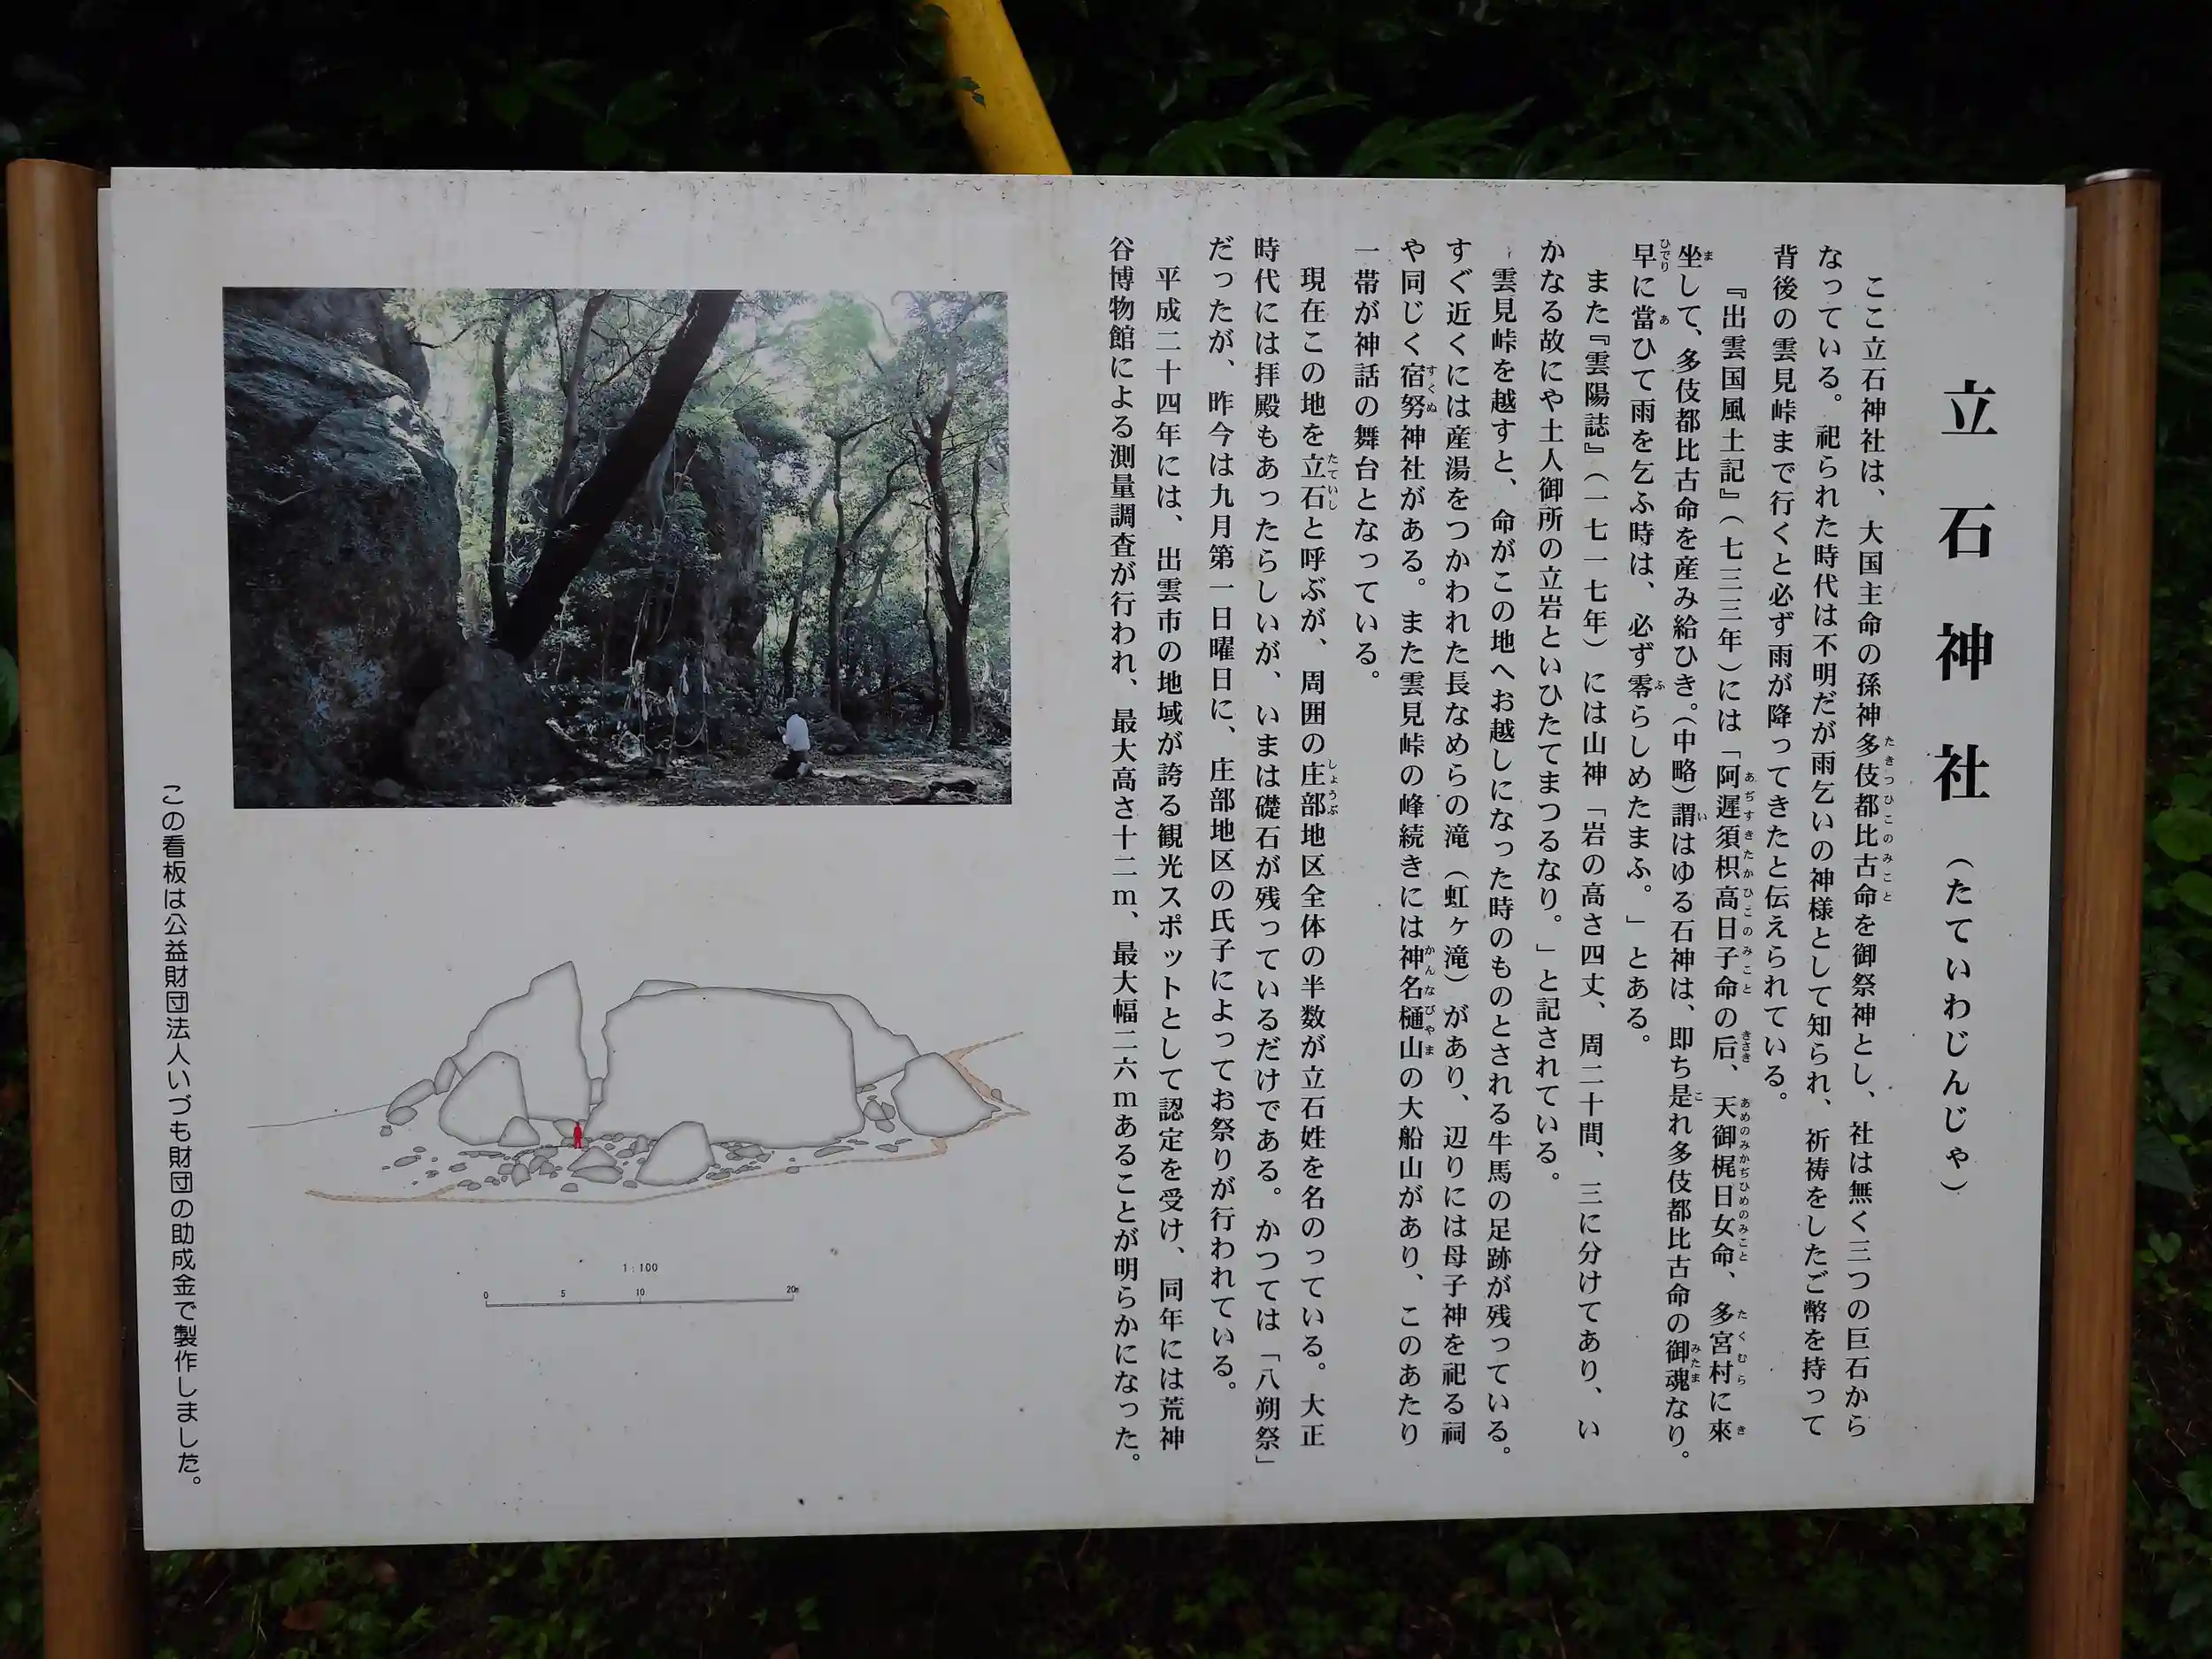 立石神社（たていわじんじゃ）
ここ立石神社は、大国主命の孫神多伎都比古命を御祭神とし、社は無く三つの巨石から
なっている。祀られた時代は不明だが雨乞いの神様として知られ、祈祷をしたご幣を持って
背後の雲見峠まで行くと必ず雨が降ってきたと伝えられている。
『出雲国風土記』（七三三年）には「阿遅須枳高日子命の后、天御梶日女命、多宮村に來
坐して、多伎都比古命を産み給ひき。（中略）謂はゆる石神は、即ち是れ多伎都比古命の御魂なり。
早に當ひて雨を乞ふ時は、必ず零らしめたまふ。」とある。
また『雲陽誌』（一七一七年）には山神「岩の高さ四丈、周二十間、三に分けてあり、い
かなる故にや土人御所の立岩といひたてまつるなり。」と記されている。
雲見峠を越すと、命がこの地へお越しになった時のものとされる牛馬の足跡が残っている。
すぐ近くには産湯をつかわれた長なめらの滝（虹ヶ滝）があり、辺りには母子神を祀る祠
や同じく宿努神社がある。また雲見峠の峰続きには神名樋山の大船山があり、このあたり
一帯が神話の舞台となっている。
現在この地を立石と呼ぶが、周囲の庄部地区全体の半数が立石姓を名のっている。大正
時代には拝殿もあったらしいが、いまは礎石が残っているだけである。かつては「八朔祭」
だったが、昨今は九月第一日曜日に、庄部地区の氏子によってお祭りが行われている。
平成二十四年には、出雲市の地域が誇る観光スポットとして認定を受け、同年には荒神
谷博物館による測量調査が行われ、最大高さ十二ｍ、最大幅二六ｍあることが明らかになった。
1:100
0 5 10 20m
この看板は公益財団法人いづも財団の助成金で製作しました。